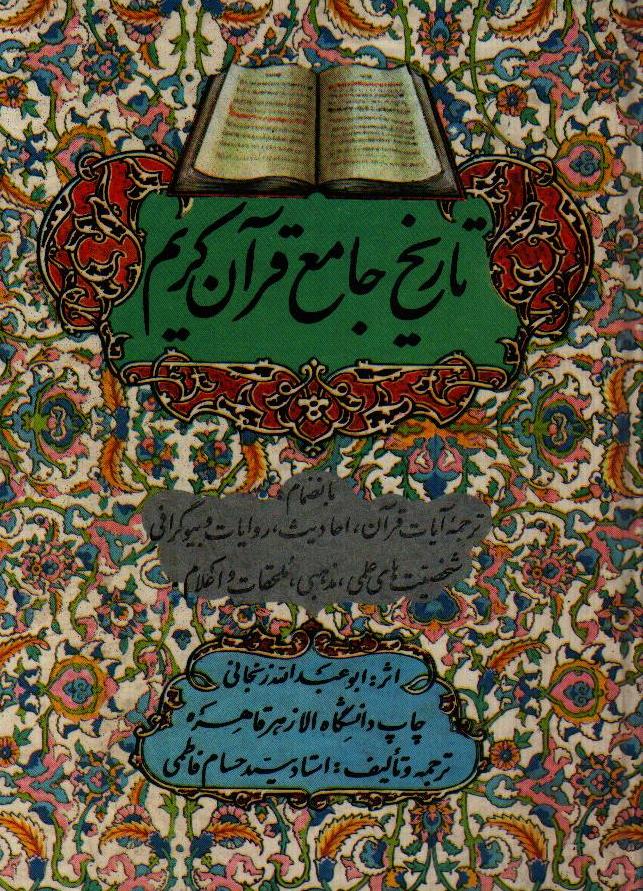 تاریخ جامع قرآن کریم
بانضمام
ترجمهٔ آیات قرآن، احادیث، روایات و بیوگرافی
شخصیت های علمی، مذهبی، ملحقات و اعلام
اثر: ابو عبدالله زنجانی
چاپ دانشگاه الازهر قاهره
ترجمه و تألیف: استاد سید حسام فاطمی